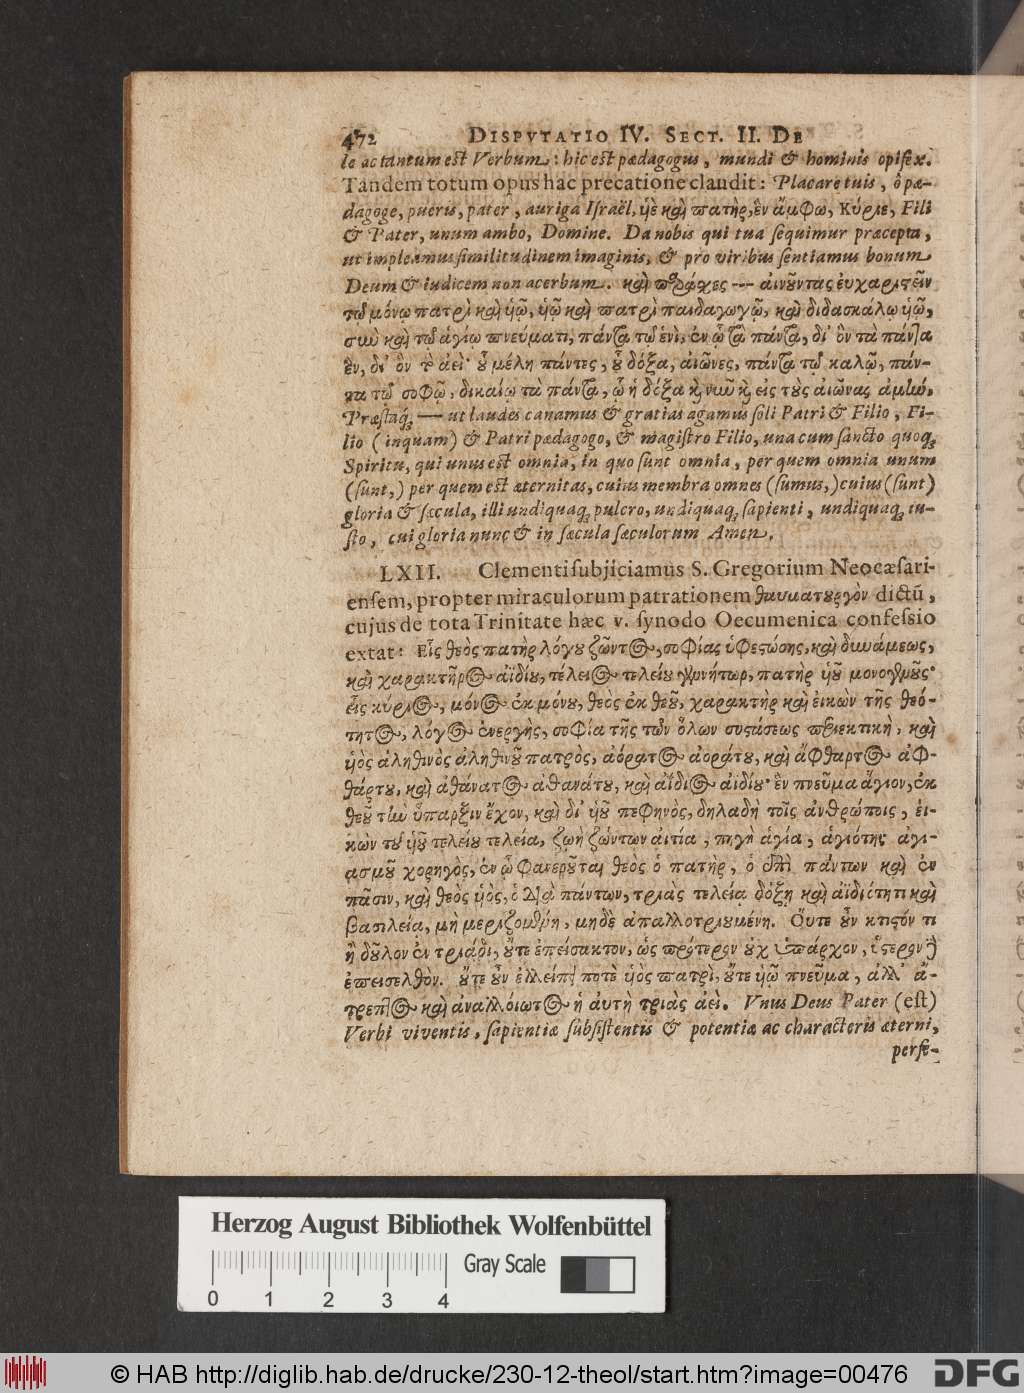 472 DISPVTATIO IV. SECT. II. DE
le ac tantum est Verbum: hic est pædagogus, mundi & hominis opifex.
Tandem totum opus hac precatione claudit: Placare tuis, ô pæ-
dagoge, pueris, pater, auriga Israël, ὑὲ καὶ πατὴρ, ἓν ἄμφω, Κύριε, Fili
& Pater, unum ambo, Domine. Da nobis qui tua sequimur præcepta,
ut impleamus similitudinem imaginis, & pro viribus sentiamus bonum
Deum & iudicem non acerbum. καὶ πράχες --- αἰνοῦντας ἐυχαριστεῖν
τῷ μόνῳ πατρὶ καὶ ὑῷ, ὑῷ καὶ πατρὶ παιδαγωγῷ, καὶ διδασκάλῳ ὑῷ,
σιωὺ καὶ τῷ ἁγίῳ πνεύματι, πάντα τῷ ἑνὶ, ἐν ᾧ τὰ πάντα, δι' ὃν τὰ πάντα
ἓν, δι' ὃν τὸ ἀεί· οὗ μέλη πάντες, οὗ δόξα, αἰῶνες, πάντα τῷ καλῷ, πάν-
τα τῷ σοφῷ, δικαίῳ τὰ πάντα, ᾧ ἡ δόξα καὶ νιωῦ καὶ εἰς τοὺς αἰῶνας ἀμιώ.
Præstaq́; --- ut laudes canamus & gratias agamus soli Patri & Filio, Fi-
lio (inquam) & Patri pædagogo, & magistro Filio, una cum sancto quoq́;
Spiritu, qui unus est omnia, in quo sunt omnia, per quem omnia unum
(sunt,) per quem est æternitas, cuius membra omnes (sumus,) cuius (sunt)
gloria & sæcula, illi undiquaq́; pulcro, undiquaq́; sapienti, undiquaq́; iu-
sto, cui gloria nunc & in sæcula sæculorum Amen.
LXII. Clementi subjiciamus S. Gregorium Neocæsari-
ensem, propter miraculorum patrationem θαυματουργὸν dictū,
cujus de tota Trinitate hæc v. synodo Oecumenica confessio
extat: Εἷς θεὸς πατὴρ λόγου ζῶντος, σοφίας ὑφεστώσης, καὶ διωάμεως,
καὶ χαρακτῆρος ἀϊδίου, τέλειος τελείου γεννήτωρ, πατὴρ ὑοῦ μονογενοῦς·
εἷς κύριος, μόνος ἐκ μόνου, θεὸς ἐκ θεοῦ, χαρακτὴρ καὶ ἐικὼν τῆς θεό-
τητος, λόγος ἐνεργὴς, σοφία τῆς τῶν ὅλων συστάσεως περιεκτικὴ, καὶ
ὑὸς ἀληθινὸς ἀληθινοῦ πατρὸς, ἀόρατος ἀοράτου, καὶ ἄφθαρτος ἀφ-
θάρτου, καὶ ἀθάνατος ἀθανάτου, καὶ ἀΐδιος ἀϊδίου· ἓν πνεῦμα ἅγιον, ἐκ
θεοῦ τιωὺ ὕπαρξιν ἔχον, καὶ δι' ὑοῦ πεφηνὸς, δηλαδὴ τοῖς ἀνθρώποις, ἐι-
κὼν τοῦ ὑοῦ τελείου τελεία, ζωὴ ζώντων αἰτία, πηγὴ ἁγία, ἁγιότης ἁγι-
ασμοῦ χορηγὸς, ἐν ᾧ φανεροῦται θεὸς ὁ πατὴρ, ὁ ἐπὶ πάντων καὶ ἐν
πᾶσιν, καὶ θεὸς ὑὸς, ὁ διὰ πάντων, τριὰς τελεία δόξῃ καὶ ἀϊδιότητι καὶ
βασιλείᾳ, μὴ μεριζομένη, μηδὲ ἀπαλλοτριουμένη. Οὔτε οὖν κτιστόν τι
ἢ δοῦλον ἐν τριάδι, οὔτε ἐπείσακτον, ὡς πρότερον οὐχ ὑπάρχον, ὕστερον δὲ
ἐπεισελθόν. οὔτε οὖν ἐλλείπει ποτὲ ὑὸς πατρὶ, οὔτε ὑῷ πνεῦμα, ἀλλ' ἄ-
τρεπτος καὶ ἀναλλόιωτος ἡ ἀυτὴ τριὰς ἀεί. Vnus Deus Pater (est)
Verbi viventis, sapientiæ subsistentis & potentiæ ac characteris æterni,
perfe-
Herzog August Bibliothek Wolfenbüttel
Gray Scale
0 1 2 3 4
© HAB http://diglib.hab.de/drucke/230-12-theol/start.htm?image=00476 DFG